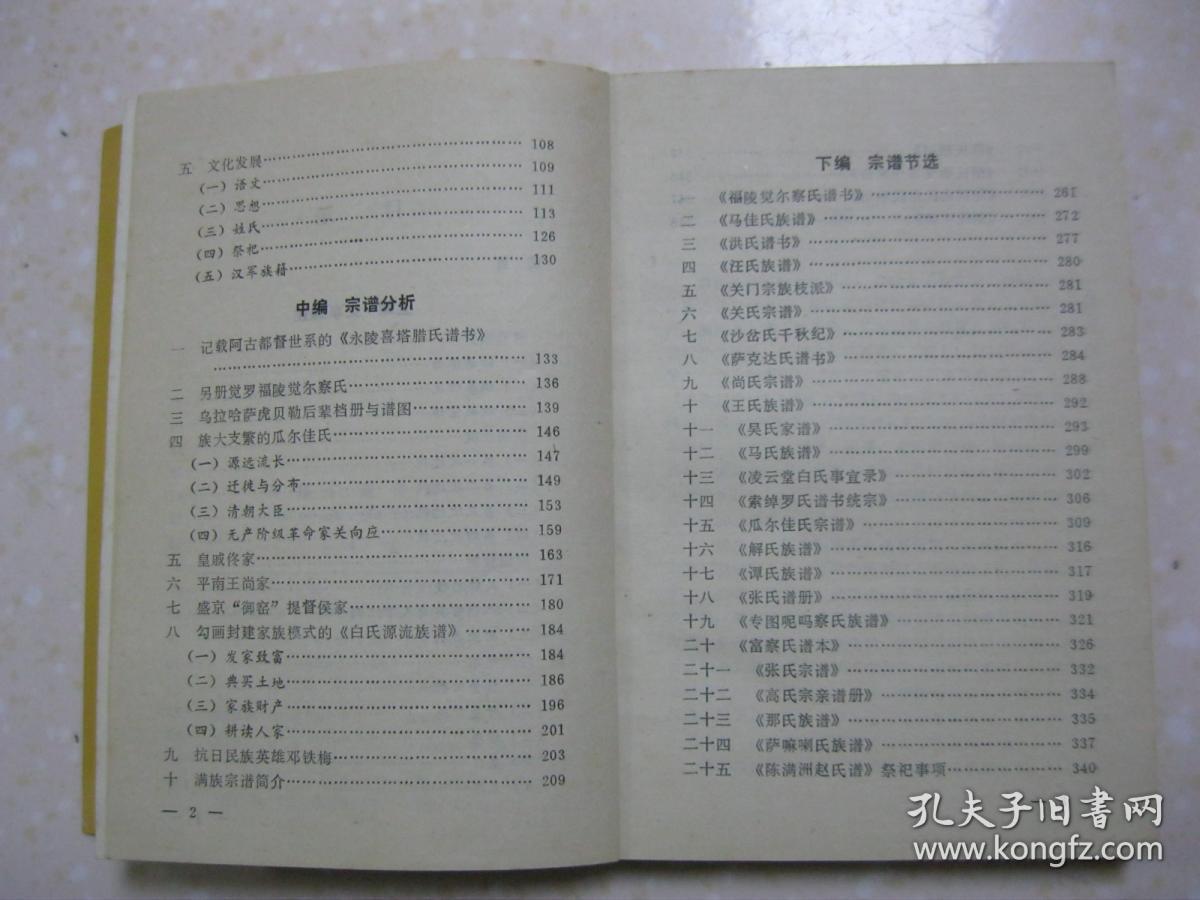 五 文化发展……108
（一）语文……109
（二）思想……111
（三）姓氏……113
（四）祭祀……126
（五）汉军族籍……130
中编 宗谱分析
一 记载阿古都督世系的《永陵喜塔腊氏谱书》
……133
二 另册觉罗福陵觉尔察氏……136
三 乌拉哈萨虎贝勒后辈档册与谱图……139
四 族大支繁的瓜尔佳氏……146
（一）源远流长……147
（二）迁徙与分布……149
（三）清朝大臣……153
（四）无产阶级革命家关向应……159
五 皇戚佟家……163
六 平南王尚家……171
七 盛京“御窑”提督侯家……180
八 勾画封建家族模式的《白氏源流族谱》……184
（一）发家致富……184
（二）典买土地……186
（三）家族财产……196
（四）耕读人家……201
九 抗日民族英雄邓铁梅……203
十 满族宗谱简介……209
— 2 —
下编 宗谱节选
一 《福陵觉尔察氏谱书》……261
二 《马佳氏族谱》……272
三 《洪氏谱书》……277
四 《汪氏族谱》……280
五 《关门宗族枝派》……281
六 《关氏宗谱》……281
七 《沙岔氏千秋纪》……283
八 《萨克达氏谱书》……284
九 《尚氏宗谱》……288
十 《王氏族谱》……292
十一 《吴氏家谱》……293
十二 《马氏族谱》……299
十三 《凌云堂白氏事宜录》……302
十四 《索绰罗氏谱书统宗》……306
十五 《瓜尔佳氏宗谱》……309
十六 《解氏族谱》……316
十七 《谭氏族谱》……317
十八 《张氏谱册》……319
十九 《专图呢吗察氏族谱》……321
二十 《富察氏谱本》……326
二十一 《张氏宗谱》……332
二十二 《高氏宗亲谱册》……334
二十三 《那氏族谱》……335
二十四 《萨嘛喇氏族谱》……337
二十五 《陈满洲赵氏谱》祭祀事项……340
孔夫子旧书网
www.kongfz.com